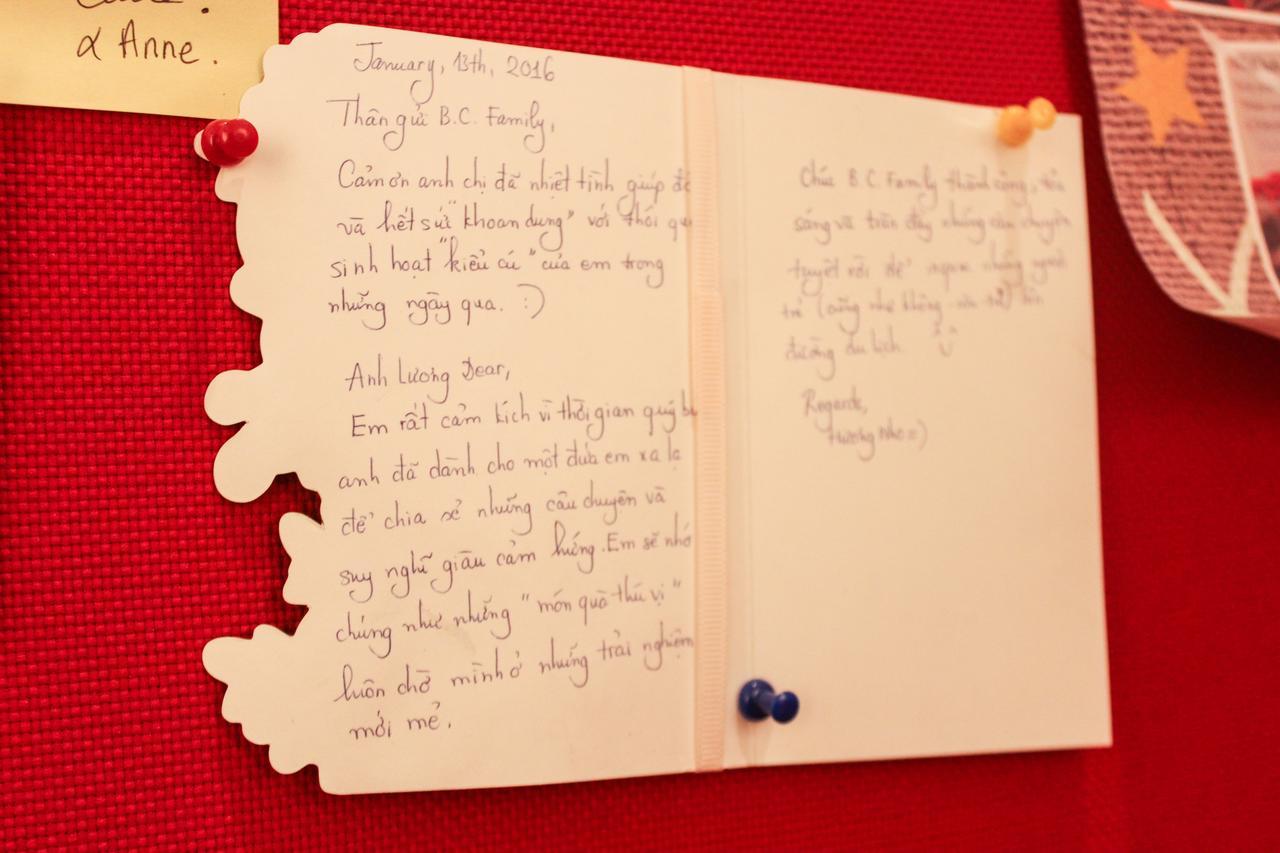 & Anne.
January, 13th, 2016
Thân gửi B.C. Family,
Cảm ơn anh chị đã nhiệt tình giúp đỡ
và hết sức "khoan dung" với thói
sinh hoạt "kiểu cú" của em trong
những ngày qua. :)
Anh Lương Dear,
Em rất cảm kích vì thời gian quý
anh đã dành cho một đứa em xa lạ
để chia sẻ những câu chuyện và
suy nghĩ giàu cảm hứng. Em sẽ nhớ
chúng như những "món quà thú vị"
luôn chờ mình ở những trải nghiệm
mới mẻ.
Chúc B.C. Family thành công, tỏa
sáng và tràn đầy những câu chuyện
tuyệt vời để những người
trẻ (cũng như không còn trẻ) lên
đường du lịch.
Regards,